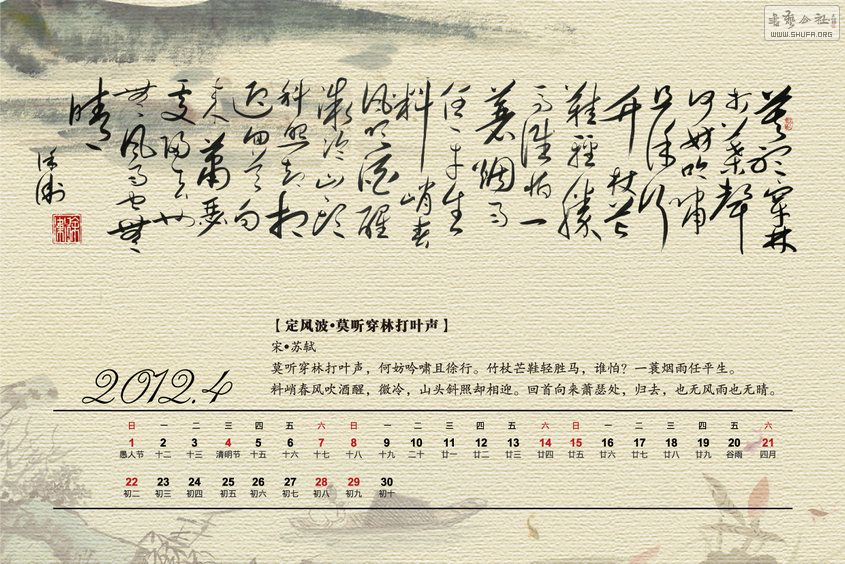 書藝公社
WWW.SHUFA.ORG
莫听穿林
打叶声
何妨吟啸
且徐行
竹杖芒
鞋轻胜
马谁怕一
蓑烟雨
任平生
料峭春
风吹酒醒
微冷山头
斜照却相
迎回首向
来萧瑟
处归去也
无风雨也无
晴
【定风波•莫听穿林打叶声】
宋•苏轼
莫听穿林打叶声，何妨吟啸且徐行。竹杖芒鞋轻胜马，谁怕？一蓑烟雨任平生。
料峭春风吹酒醒，微冷，山头斜照却相迎。回首向来萧瑟处，归去，也无风雨也无晴。
2012.4
日 一 二 三 四 五 六 日 一 二 三 四 五 六 日 一 二 三 四 五 六
1 2 3 4 5 6 7 8 9 10 11 12 13 14 15 16 17 18 19 20 21
愚人节 十二 十三 清明节 十五 十六 十七 十八 十九 二十 廿一 廿二 廿三 廿四 廿五 廿六 廿七 廿八 廿九 谷雨 四月
22 23 24 25 26 27 28 29 30
初二 初三 初四 初五 初六 初七 初八 初九 初十